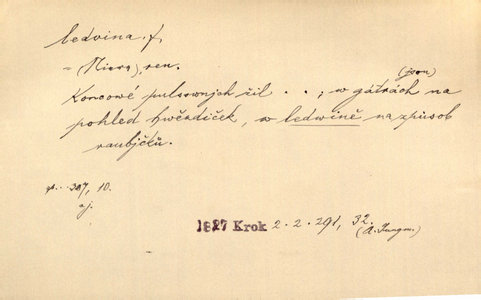 ledvina, f.
= (Niera), ren.
(jsou)
Koncowé pulsownjch žil . . ; w gátrách na
pohled hwězdiček, w ledwině na způsob
raubjčků.
p.. 307, 10.
aj.
1827 Krok 2. 2. 291, 32.
(A. Jungm.)